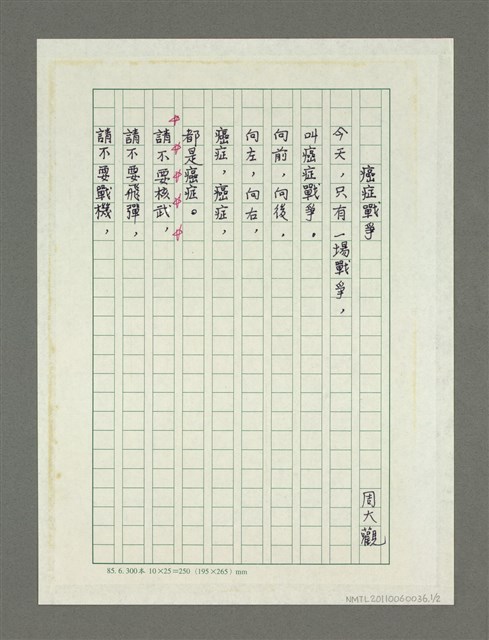 癌症戰爭
周大觀
今天，只有一場戰爭，
叫癌症戰爭。
向前，向後，
向左，向右，
癌症，癌症，
都是癌症。
請不要核武，
請不要飛彈，
請不要戰機，
85. 6. 300本 10×25＝250（195×265）mm
NMTL20110060036.1/2